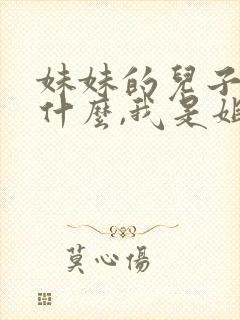 妹妹的兒子
什麼,我是姐
莫心傷